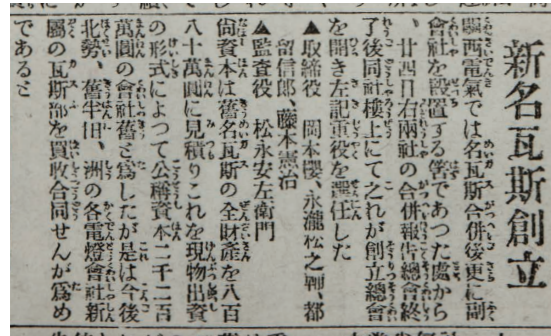 新名瓦斯創立
關西電氣では名瓦斯合併後更に副
會社を設置する筈であつた處から
、廿四日右兩社の合併報告總會終
了後同社樓上にて之れが創立總會
を開き左記重役を選任した
▲取締役　岡本櫻、永瀧松之 都
留信郎、藤本憲治
▲監査役　松永安左衛門
尙資本は舊名瓦斯の全財產を八百
八十萬圓に見積りこれを現物出資
の形式によつて公稱資本二千二百
萬圓の會社舊と爲したが是は今後
北勢、舊半田、 洲の各電燈會社新
屬の瓦斯部を買收合同せんが爲め
であると